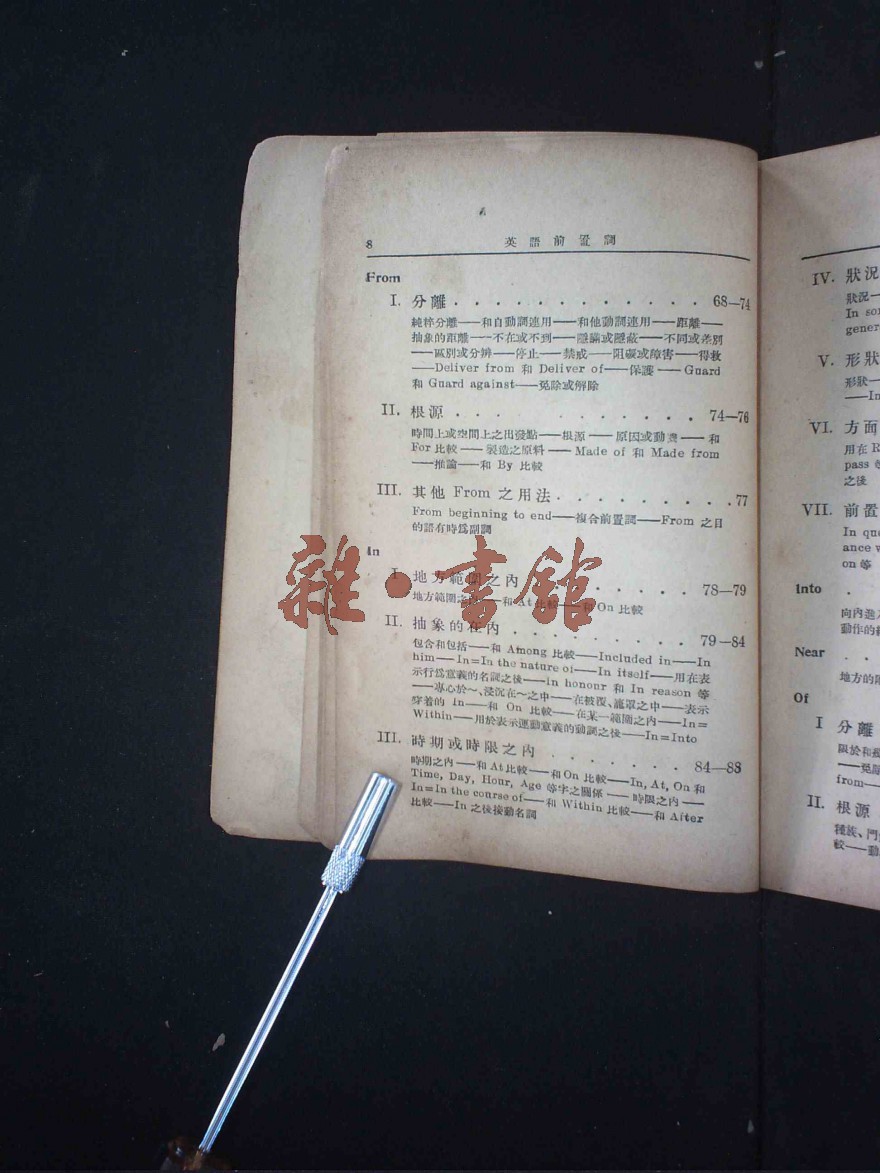 8 英語前置詞
From
I. 分離 . . . . . . . . . . . . . 68—74
純粹分離——和自動詞連用——和他動詞連用——距離——
抽象的距離——不在或不到——隱瞞或隱蔽——不同或差別
——區別或分辨——停止——禁戒——阻礙或障害——得救
——Deliver from 和 Deliver of——保護——Guard
和 Guard against——免除或解除
II. 根源 . . . . . . . . . . . . 74—76
時間上或空間上之出發點——根源——原因或動機——和
For 比較——製造之原料——Made of 和 Made from
——推論——和 By 比較
III. 其他 From 之用法 . . . . . . . . . 77
From beginning to end——複合前置詞——From 之目
的語有時爲副詞
In
I 地方範圍之內 . . . . . . . . . 78—79
地方範圍之內——和 At 比較——和 On 比較
II. 抽象的在內 . . . . . . . . . . 79—84
包含和包括——和 Among 比較——Included in——In
him——In=In the nature of——In itself——用在表
示行爲意義的名詞之後——in honour 和 In reason 等
——專心於～、浸沉在～之中——在被覆、籠罩之中——表示
穿着的 In——和 On 比較——在某一範圍之內——In=
Within——用於表示運動意義的動詞之後——In=Into
III. 時期或時限之內 . . . . . . . . 84—88
時期之內——和 At 比較——和 On 比較——In, At, On 和
Time, Day, Hour, Age 等字之關係——時限之內——
In=In the course of——和 Within 比較——和 After
比較——In 之後接動名詞
雜·書館
IV. 狀況
狀況—
In so
gener
V. 形狀
形狀—
——In
VI. 方面
用在 R
pass
之後
VII. 前置
In que
ance w
on 等
Into .
向內進
動作的
Near . .
地方的
Of
I 分離
限於和
——免
from—
II. 根源
種族、門
較——動